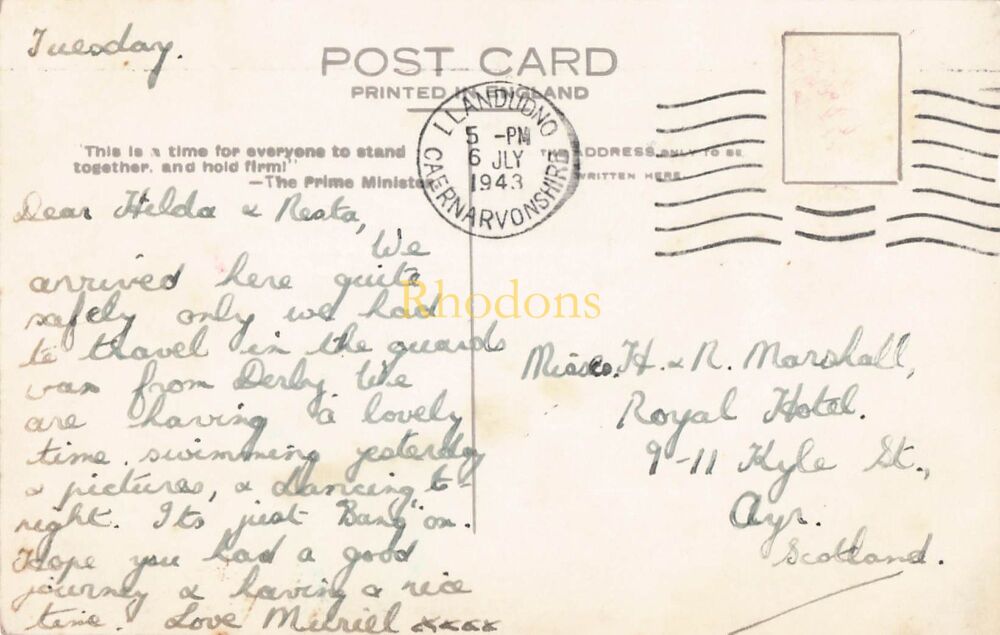 Tuesday.
POST CARD
PRINTED IN ENGLAND
LLANDUDNO
CAERNARVONSHIRE
5 -PM
6 JLY
1943
"This is a time for everyone to stand
together, and hold firm!"
—The Prime Minister
THE ADDRESS ONLY TO BE
WRITTEN HERE
Dear Hilda & Nesta,
We
arrived here quite
safely only we had
to travel in the guards
van from Derby. We
are having a lovely
time. swimming yesterday
& pictures, & dancing to-
night. Its just "Bang on.
Hope you had a good
journey & having a nice
time. Love Muriel xxxx
Misses. H. & N. Marshall,
Royal Hotel.
9-11 Kyle St.,
Ayr.
Scotland.
Rhodons